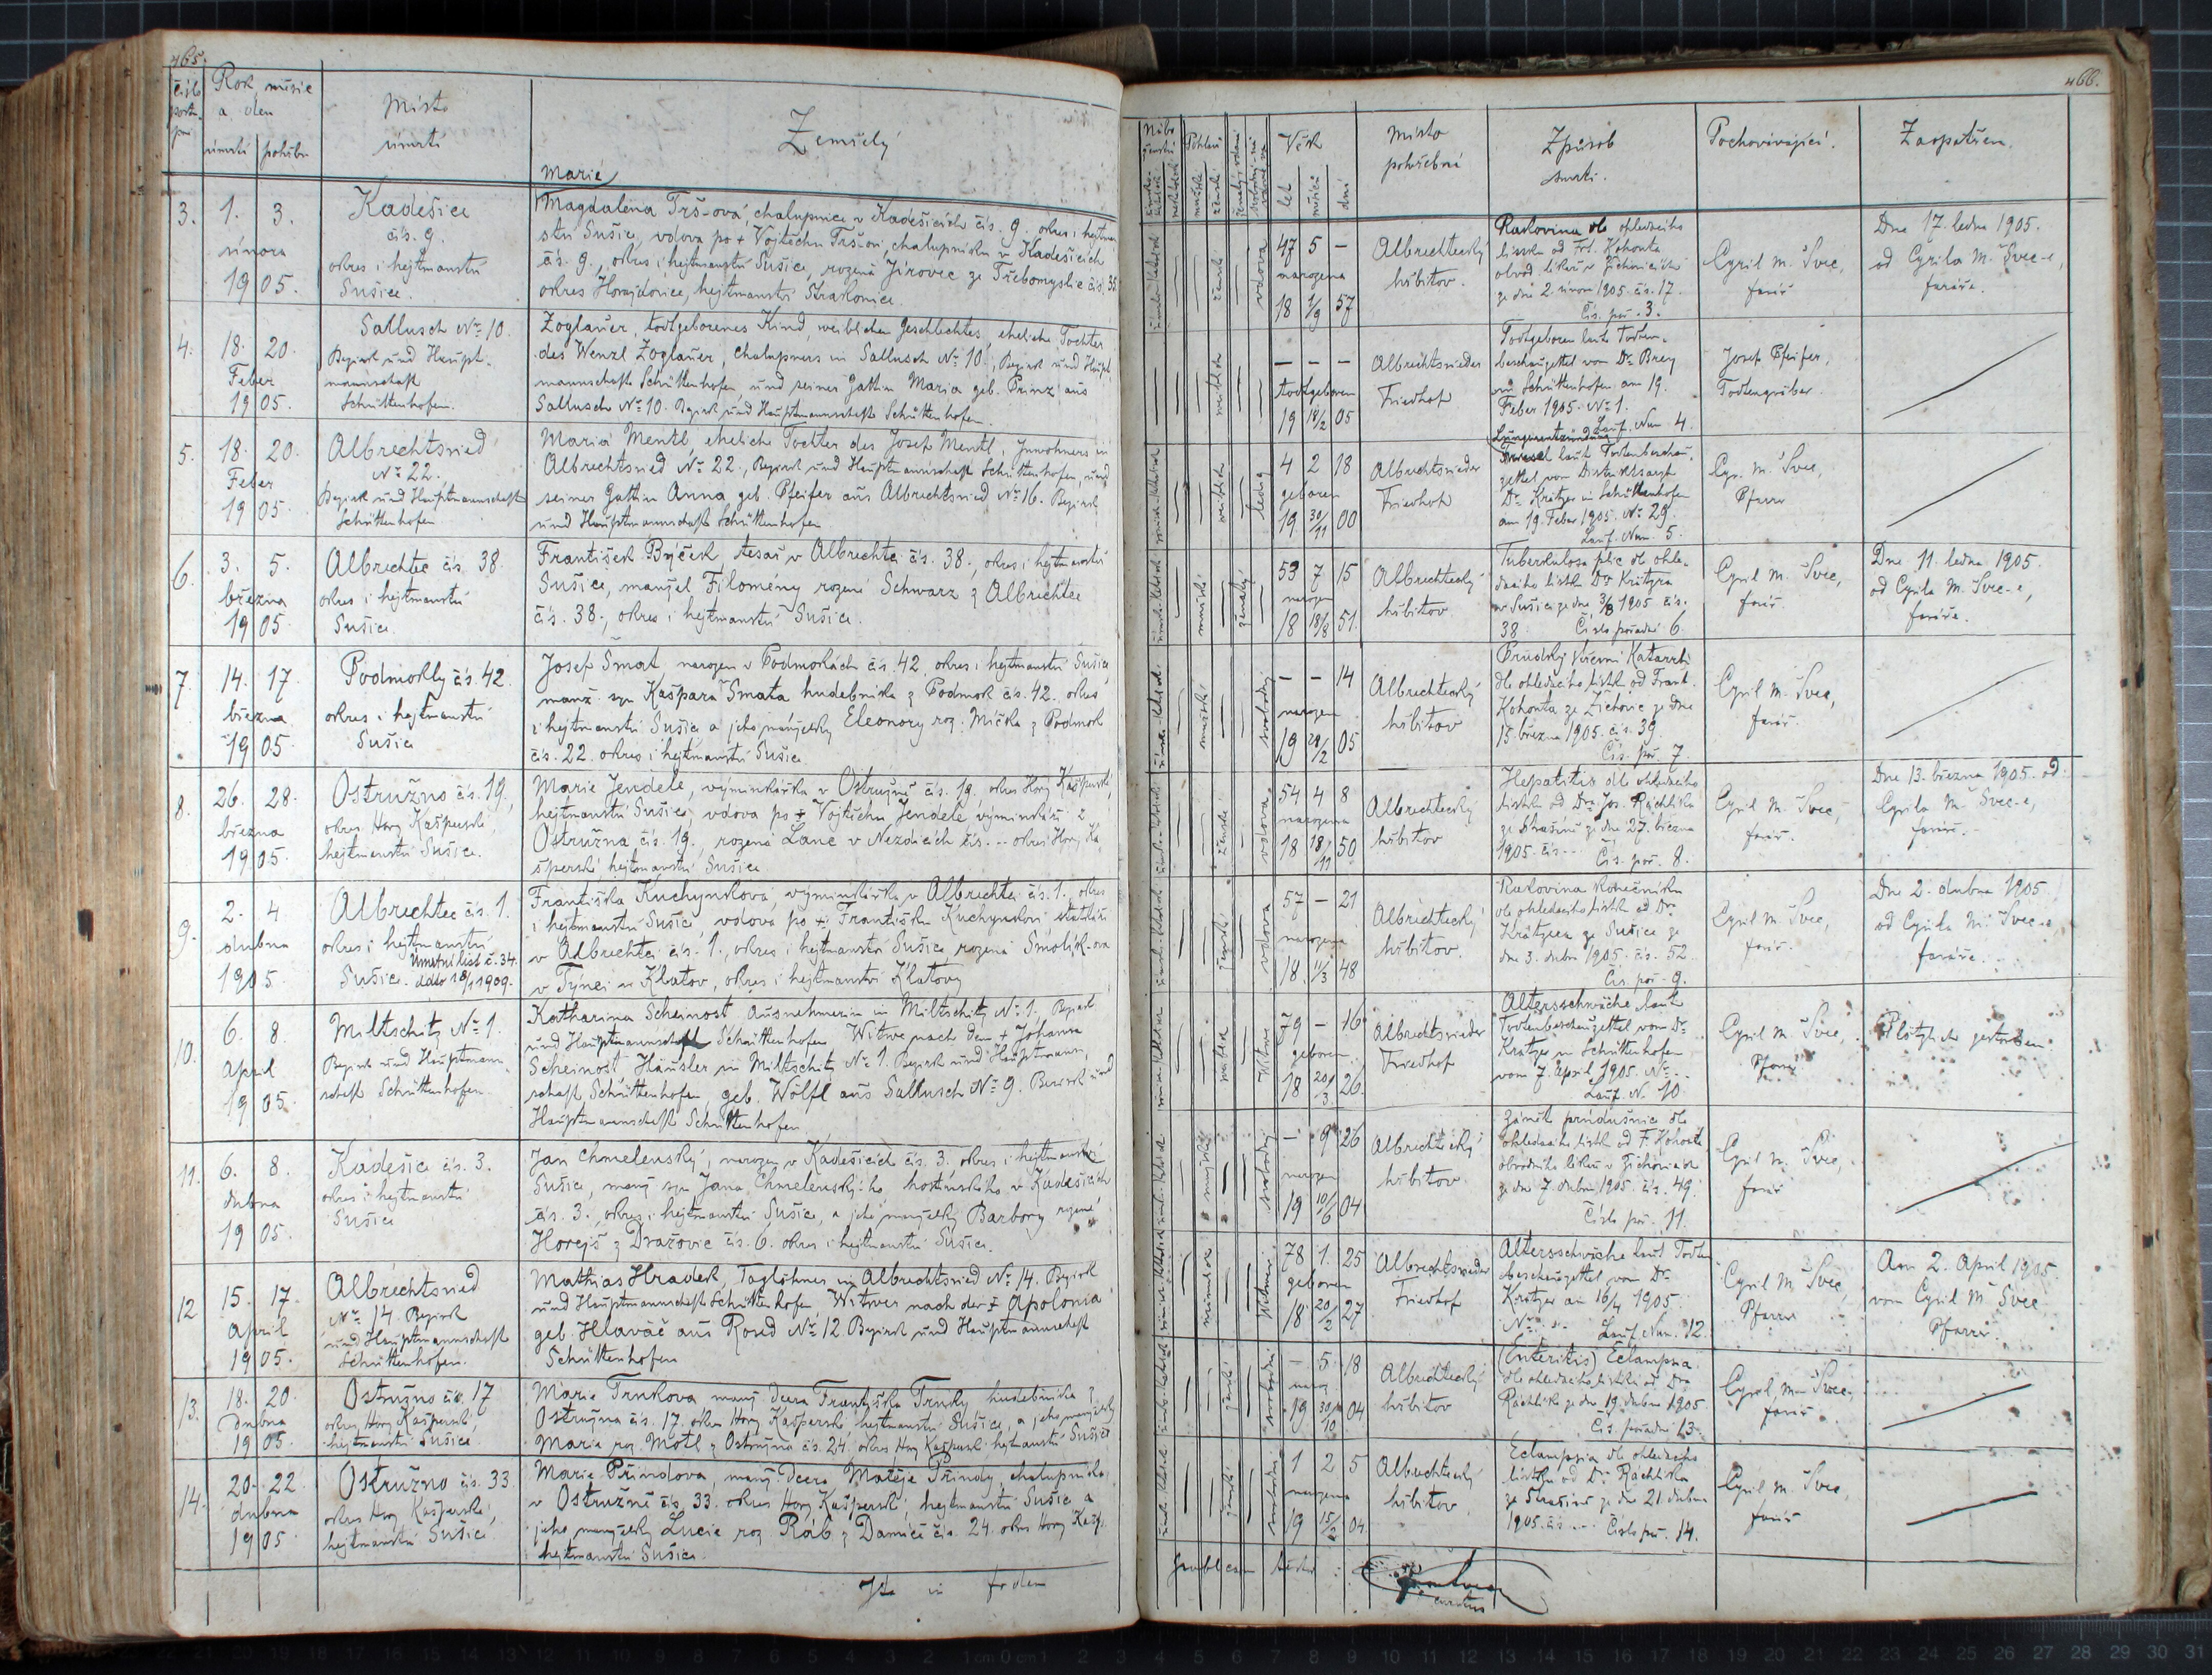 465.
číslo
pořa-
dní
Rok, měsíc
a den
úmrtí
pohřbu
Místo
úmrtí
Zemřelý
Marie
3.
1. 3.
února
1905.
Kadešice
čís. 9.
okres i hejtmanství
Sušice.
Magdalena Trš-ová, chalupnice v Kadešicích čís. 9. okres i hejtman-
ství Sušice, vdova po + Vojtěchu Tršovi, chalupníku v Kadešicích
čís. 9., okres i hejtmanství Sušice, rozená Jírovec ze Třebomyslic čís. 35.
okres Horažďovice, hejtmanství Strakonice.
4.
18. 20.
Feber
1905.
Sallusch No 10.
Bezirk und Haupt-
mannschaft
Schüttenhofen.
Zoglauer, todtgeborenes Kind, weiblichen Geschlechtes, eheliche Tochter
des Wenzl Zoglauer, Chalupners in Sallusch No 10., Bezirk und Haupt-
mannschaft Schüttenhofen und seiner Gattin Maria geb. Prinz aus
Sallusch No 10. Bezirk und Hauptmannschaft Schüttenhofen.
5.
18. 20.
Feber
1905.
Albrechtsried
No 22.,
Bezirk und Hauptmannschaft
Schüttenhofen
Maria Mentl, eheliche Tochter des Josef Mentl, Inwohners in
Albrechtsried No 22., Bezirk und Hauptmannschaft Schüttenhofen, und
seiner Gattin Anna geb. Pfeifer aus Albrechtsried No 16. Bezirk
und Hauptmannschaft Schüttenhofen
6.
3. 5.
března
1905
Albrechtec čís. 38.
okres i hejtmanství
Sušice.
František Býček tesař v Albrechtci čís. 38., okres i hejtmanství
Sušice, manžel Filomény rozené Schwarz z Albrechtce
čís. 38., okres i hejtmanství Sušice.
7.
14. 17
března
1905
Podmokly čís. 42.
okres i hejtmanství
Sušice
Josef Šmat narozen v Podmoklech čís. 42 okres i hejtmanství Sušice
manž. syn Kašpara Šmata hudebníka z Podmok čís. 42. okres
i hejtmanství Sušice a jeho manželky Eleonory roz. Mička z Podmok
čís. 22 okres i hejtmanství Sušice
8.
26. 28.
března
1905.
Ostružno čís. 19.,
okres Hory Kašperské,
hejtmanství Sušice.
Marie Jendele, výminkářka v Ostružně čís. 19., okres Hory Kašperské
hejtmanství Sušice, vdova po + Vojtěchu Jendele výminkáři z
Ostružna čís. 19., rozená Lanc v Nezdicích čís. -- okres Hory Ka-
šperské hejtmanství Sušice
9.
2. 4
dubna
1905.
Albrechtec čís. 1.
okres i hejtmanství
Úmrtní list č. 34.
Sušice. ddto 18/1 1909.
Františka Kuchynková, výminkářka v Albrechtci čís. 1. okres
i hejtmanství Sušice, vdova po + Františku Kuchynkovi statkáři
v Albrechtci čís. 1., okres i hejtmanství Sušice rozená Smolík-ova
v Týnci u Klatov, okres i hejtmanství Klatovy
10.
6. 8.
April
1905.
Miltschitz No 1.
Bezirk und Hauptmann-
schaft Schüttenhofen.
Katharina Scheinost Ausnehmerin in Miltschitz No 1., Bezirk
und Hauptmannschaft Schüttenhofen Witwe nach dem + Johann
Scheinost Häusler in Miltschitz No 1. Bezirk und Hauptmann-
schaft Schüttenhofen, geb. Wölfl aus Sallusch No 9. Bezirk und
Hauptmannschaft Schüttenhofen
11.
6. 8.
dubna
1905.
Kadešice čís. 3.
okres i hejtmanství
Sušice
Jan Chmelenský, narozen v Kadešicích čís. 3. okres i hejtmanství
Sušice, manž. syn Jana Chmelenského, hostinského v Kadešicích
čís. 3., okres i hejtmanství Sušice, a jeho manželky Barbory rozené
Horejš z Dražovic čís. 6. okres i hejtmanství Sušice.
12
15. 17.
April
1905.
Albrechtsried
No 14 Bezirk
und Hauptmannschaft
Schüttenhofen.
Mathias Hradek, Taglöhner in Albrechtsried No 14. Bezirk
und Hauptmannschaft Schüttenhofen, Witwer nach der + Apolonia
geb. Hlaváč aus Rosed No 12 Bezirk und Hauptmannschaft
Schüttenhofen
13.
18. 20.
Dubna
1905.
Ostružno čís. 17
okres Hory Kašperské,
hejtmanství Sušice
Marie Trnkova manž. dcera Františka Trnky hudebníka z
Ostružna čís. 17. okres Hory Kašperské, hejtmanství Sušice, a jeho manželky
Marie roz. Motl z Ostružna čís. 24. okres Hory Kašperské hejtmanství Sušice
14.
20. 22.
dubna
1905
Ostružno čís. 33.
okres Hory Kašperské,
hejtmanství Sušice
Marie Příndova, manž. dcera Matěje Příndy, chalupníka
v Ostružně čís. 33. okres Hory Kašperské, hejtmanství Sušice a
jeho manželky Lucie roz. Ráb z Damíče čís. 24. okres Hory Kašp.
hejtmanství Sušice.
466.
Nábo-
ženství
Pohlaví
mužské
ženské
Věk
let
měsíců
dní
Místo
pohřební
Způsob
smrti.
Pochovávající.
Zaopatřen.
ženské
vdova
47 5 -
narozena
18 1/9 57
Albrechtecký
hřbitov.
Rakovina dle ohledacího
lístku od Frt. Kohouta
obvod. lékaře v Žichovicích
ze dne 2. února 1905. čís. 17.
Čís. poř. 3.
Cyril M. Švec,
farář
Dne 17. ledna 1905.
od Cyrila M. Švec-e,
faráře.
weiblich
- - -
todtgeboren
19 18/2 05
Albrechtsrieder
Friedhof
Todtgeboren laut Todten-
beschauzettel von Dr. Brey
in Schüttenhofen am 19.
Feber 1905. No 1.
Lauf. Num 4.
Josef Pfeifer,
Todtengräber.
weiblich
ledig
4 2 18
geboren
19 30/11 00
Albrechtsrieder
Friedhof
Lungenentzündung
laut Todtenbeschau-
zettel vom Districtsarzt
Dr. Krätzer in Schüttenhofen
am 19. Feber 1905. No 29.
Lauf. Num. 5.
Cyr. M. Švec,
Pfarrer
mužské
ženatý
53 7 15
narozen
18 18/8 51.
Albrechtecký
hřbitov.
Tuberkulosa plic dle ohle-
dacího lístku Dr. Krätzra
v Sušici ze dne 3/3 1905 čís.
38. Číslo pořadní 6.
Cyril M. Švec,
farář.
Dne 11. ledna 1905.
od Cyrila M. Švec-e,
faráře.
mužské
svobodný
- - 14
narozen
19 28/2 05
Albrechtecký
hřbitov
Prudký střevní Katarrh
dle ohledacího lístku od Frant.
Kohouta ze Žichovic ze dne
15. března 1905. čís. 39.
Čís. poř. 7.
Cyril M. Švec,
farář.
ženské
vdova
54 4 8
narozena
18 18/11 50
Albrechtecký
hřbitov
Hepatitis dle ohledacího
lístku od Dra Jos. Ráchlíka
ze Strašína ze dne 27. března
1905. čís. -- Čís. poř. 8.
Cyril M. Švec,
farář.
Dne 13. března 1905. od
Cyrila M. Švec-e,
faráře.
ženské
vdova
57 - 21
narozena
18 11/3 48
Albrechtecký
hřbitov.
Rakovina konečníku
dle ohledacího lístku od Dra
Krätzra ze Sušice ze
dne 3. dubna 1905. čís. 52.
Čís. poř. 9.
Cyril M. Švec,
farář.
Dne 2. dubna 1905
od Cyrila M. Švec-e
faráře.
weiblich
Witwe
79 - 16
geboren
18 20/3 26.
Albrechtsrieder
Friedhof
Altersschwäche laut
Todtenbeschauzettel vom Dr.
Krätzer in Schüttenhofen
vom 7. April 1905. No --
Lauf. N. 10.
Cyril M. Švec,
Pfarrer
Plötzlich gestorben.
mužské
svobodný
- 9 26
narozen
19 10/6 04
Albrechtecký
hřbitov.
Zánět průdušnic dle
ohledacího lístku od F. Kohouta,
obvodního lékaře v Žichovicích
ze dne 7. dubna 1905. čís. 49.
Číslo poř. 11.
Cyril M. Švec,
farář
männlich
Witwer
78 1. 25
geboren
18 20/2 27
Albrechtsrieder
Friedhof
Altersschwäche laut Todten-
beschauzettel vom Dr.
Krätzer am 16/4 1905.
No -- Lauf. Num. 12.
Cyril M. Švec,
Pfarrer
Am 2. April 1905.
vom Cyril M. Švec
Pfarrer.
ženské
svobodná
- 5 18
naroz.
19 30/10 04
Albrechtecký
hřbitov
(Enteritis) Eclampsia
dle ohledacího lístku od Dra
Ráchlíka ze dne 19. dubna 1905.
Čís. pořadní 13.
Cyril M. Švec,
farář
ženské
svobodná
1 2 5
narozena
19 15/2 04.
Albrechtecký
hřbitov.
Eclampsia dle ohledacího
lístku od Dr. Ráchlíka
ze Strašína ze dne 21. dubna
1905. čís. -- Číslo poř. 14.
Cyril M. Švec,
farář